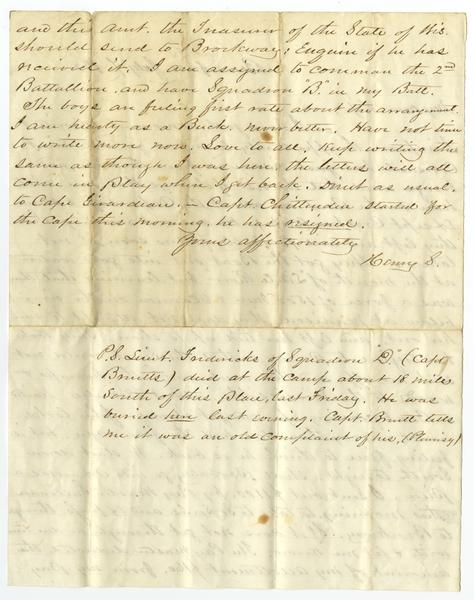 and the amt. the Treasurer of the State of Wis.
should send to Brockway: Enquire if he has
received it. I am assigned to comman the 2nd
Battallion, and have Squadron B. in my Batt.
The boys are feeling first rate about the arrangement.
I am hearty as a Buck. never better. Have not time
to write more now. Love to all. Keep writing the
same as though I was here, the letters will all
come in play when I get back. Direct as usual.
to Cape Girardian. — Capt. Chittenden started for
the Cape this morning, he has resigned.
Yours affectionately
Henry S.
P.S. Lieut. Fredericks of Squadron D. (Capt
Bruetts) died at the camp about 18 miles
South of this place, last Friday. He was
buried here last evening. Capt. Bruett tells
me it was an old complaint of his, (Pleurisy)